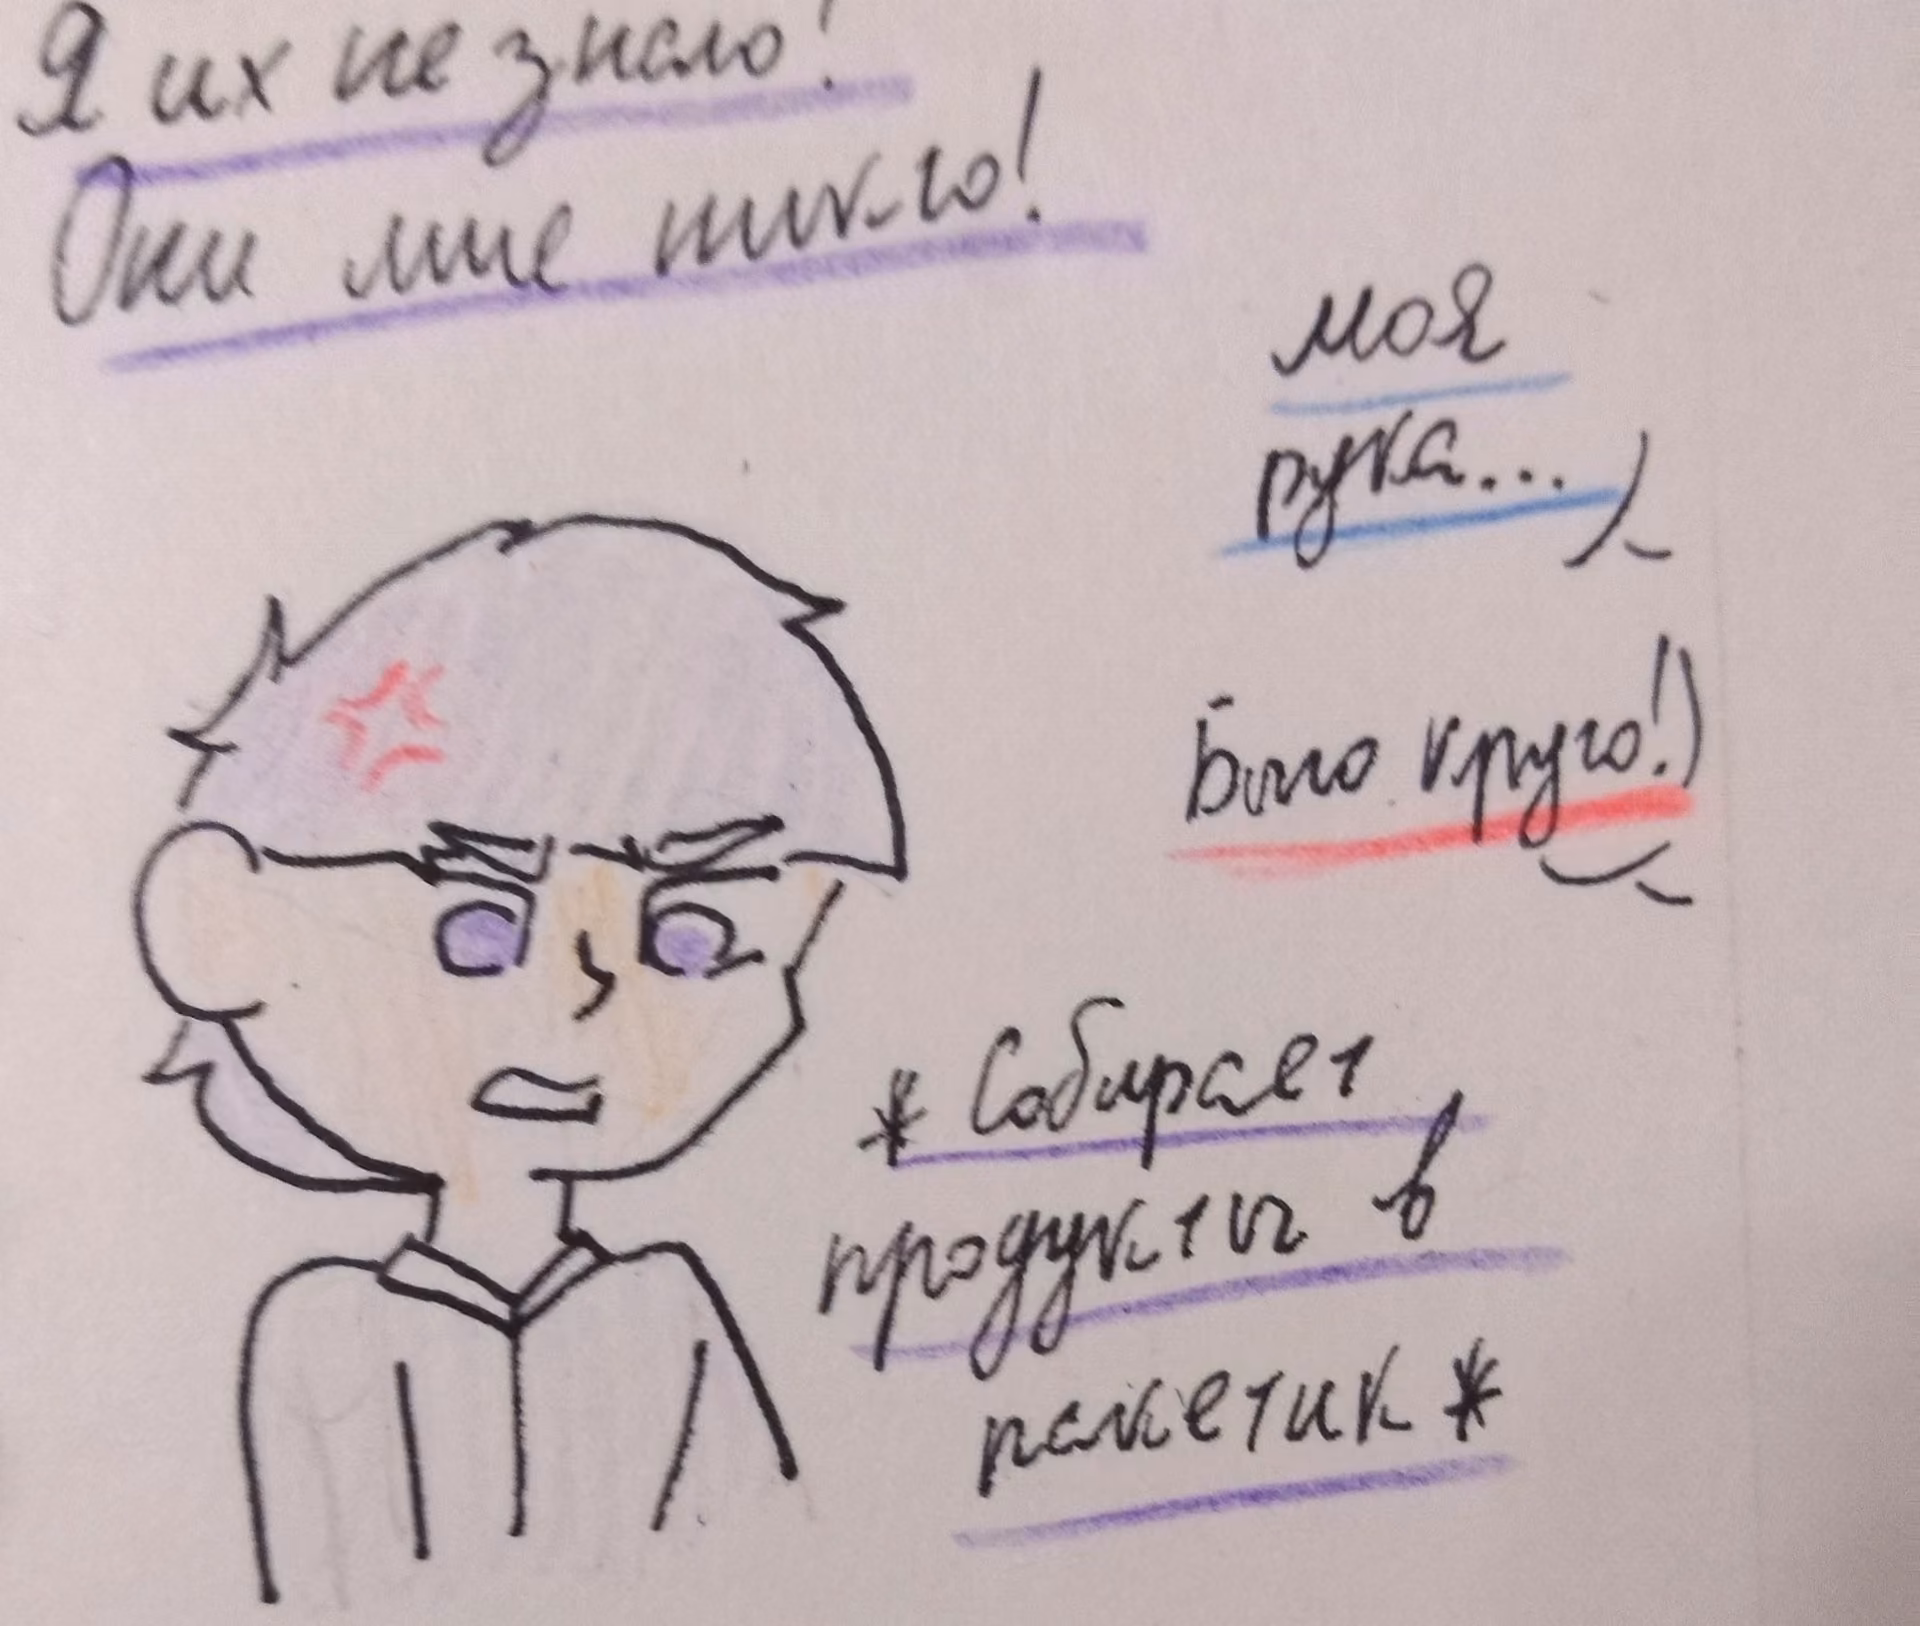 Я их не знаю!
Они мне никто!
моя
рука...
Было круто!)
* Собирает
продукты в
пакетик *